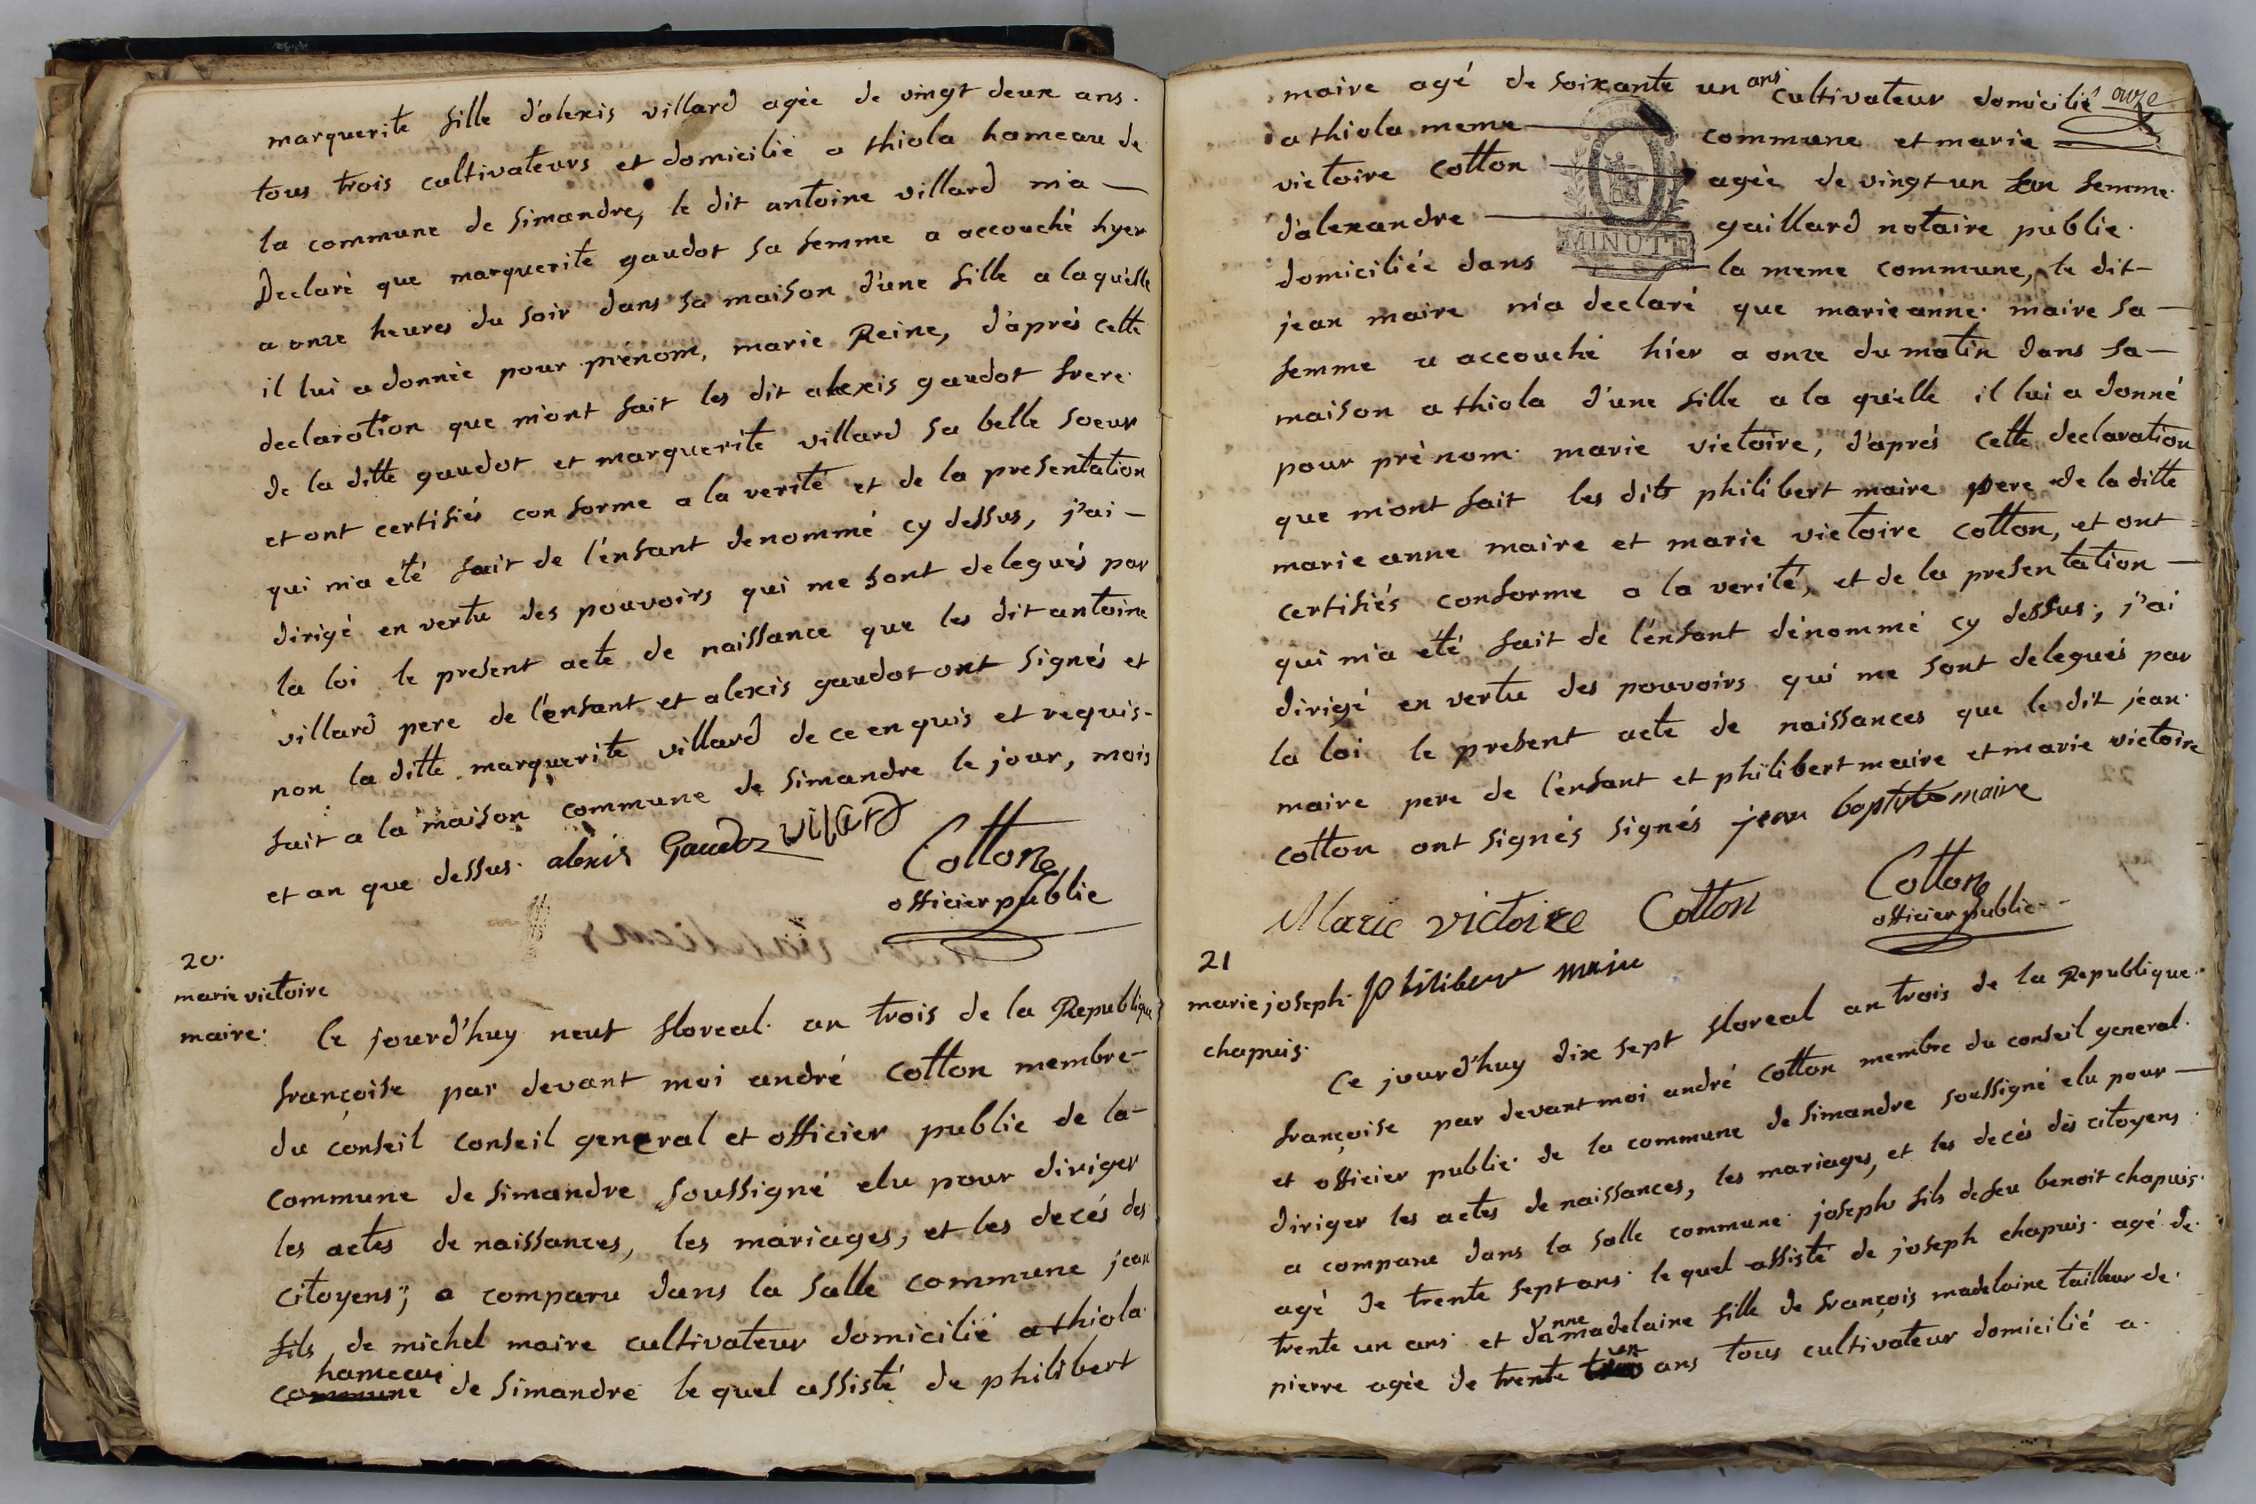 marguerite fille d'alexis villard agée de vingt deux ans.
tous trois cultivateurs et domicilié a thiola hameau de
la commune de simandre, le dit antoine villard m'a —
Declaré que marguerite gaudot sa femme a accouché hyer
a onze heures du soir dans sa maison d'une fille a laquelle
il lui a donnée pour prénom, marie Reine, d'aprés cette
declaration que m'ont fait les dit alexis gaudot frere
de la ditte gaudot et marguerite villard sa belle soeur
et ont certifiés conforme a la verité et de la presentation
qui m'a été fait de l'enfant denommé cy dessus, j'ai —
dirigé en vertu des pouvoirs qui me sont delegués par
la loi le present acte de naissance que les dit antoine
villard pere de l'enfant et alexis gaudot ont signés et
non la ditte marguerite villard de ce enquis et requis-
fait a la maison commune de simandre le jour, mois
et an que dessus. alexis Gaudoz vilard
Cotton
officier public
20.
marie victoire
maire. Ce jourd'huy neuf floreal. an trois de la Republique
françoise par devant moi andré Cotton membre-
du conseil conseil general et officier public de la-
commune de simandre soussigné elu pour diriger
les actes de naissances, les mariages, et les decés des
citoyens; a comparu dans la salle commune jean
fils de michel maire cultivateur domicilié a thiola.
hameau
commune de simandre le quel assisté de philibert
maire agé de soixante un ans cultivateur domicilié onze
a thiola meme — commune et marie
victoire Cotton — agée de vingt un an femme
d'alexandre — gaillard notaire public.
MINUTE
domiciliée dans — la meme commune, le dit-
jean maire m'a declaré que marieanne maire sa-
femme a accouché hier a onze du matin dans sa-
maison a thiola d'une fille a la qu'elle il lui a donné
pour prénom. marie victoire, d'aprés cette declaration
que m'ont fait les dits philibert maire pere de la ditte
marie anne maire et marie victoire Cotton, et ont
certifiés conforme a la verité, et de la presentation —
qui m'a été fait de l'enfant dénommé cy dessus; j'ai
dirigé en vertu des pouvoirs qui me sont delegués par
la loi le present acte de naissances que le dit jean
maire pere de l'enfant et philibert maire et marie victoire
Cotton ont signés signés jean baptiste maire
Marie victoire Cotton Cotton
officier public
21
marie joseph. philibert maire
chapuis.
Ce jourd'huy dix sept floreal an trois de la Republique.
françoise par devant moi andré Cotton membre du conseil general.
et officier public. de la commune de simandre soussigné elu pour —
diriger les actes de naissances, les mariages, et les decés dés citoyens.
a comparu dans la salle commune joseph fils de feu benoit chapuis.
agé de trente sept ans. le quel assisté de joseph chapuis. agé de.
trente un ans. et d'anne madelaine fille de françois madelaine tailleur de.
pierre agée de trente un ans tous cultivateur domicilié a.